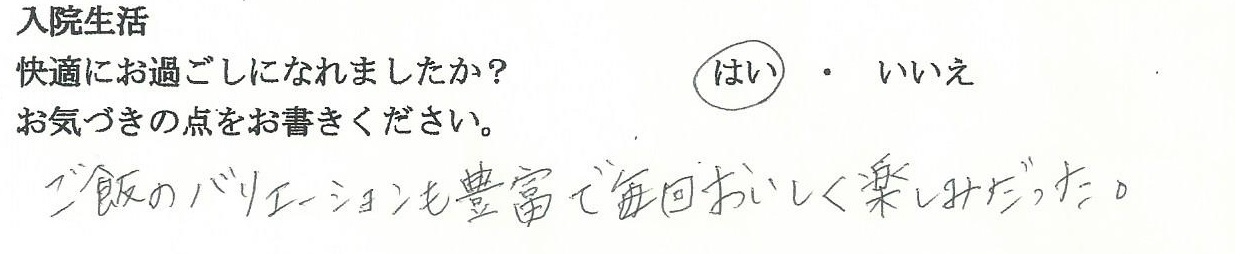 入院生活
快適にお過ごしになれましたか? はい ・ いいえ
お気づきの点をお書きください。
ご飯のバリエーションも豊富で毎回おいしく楽しみだった。